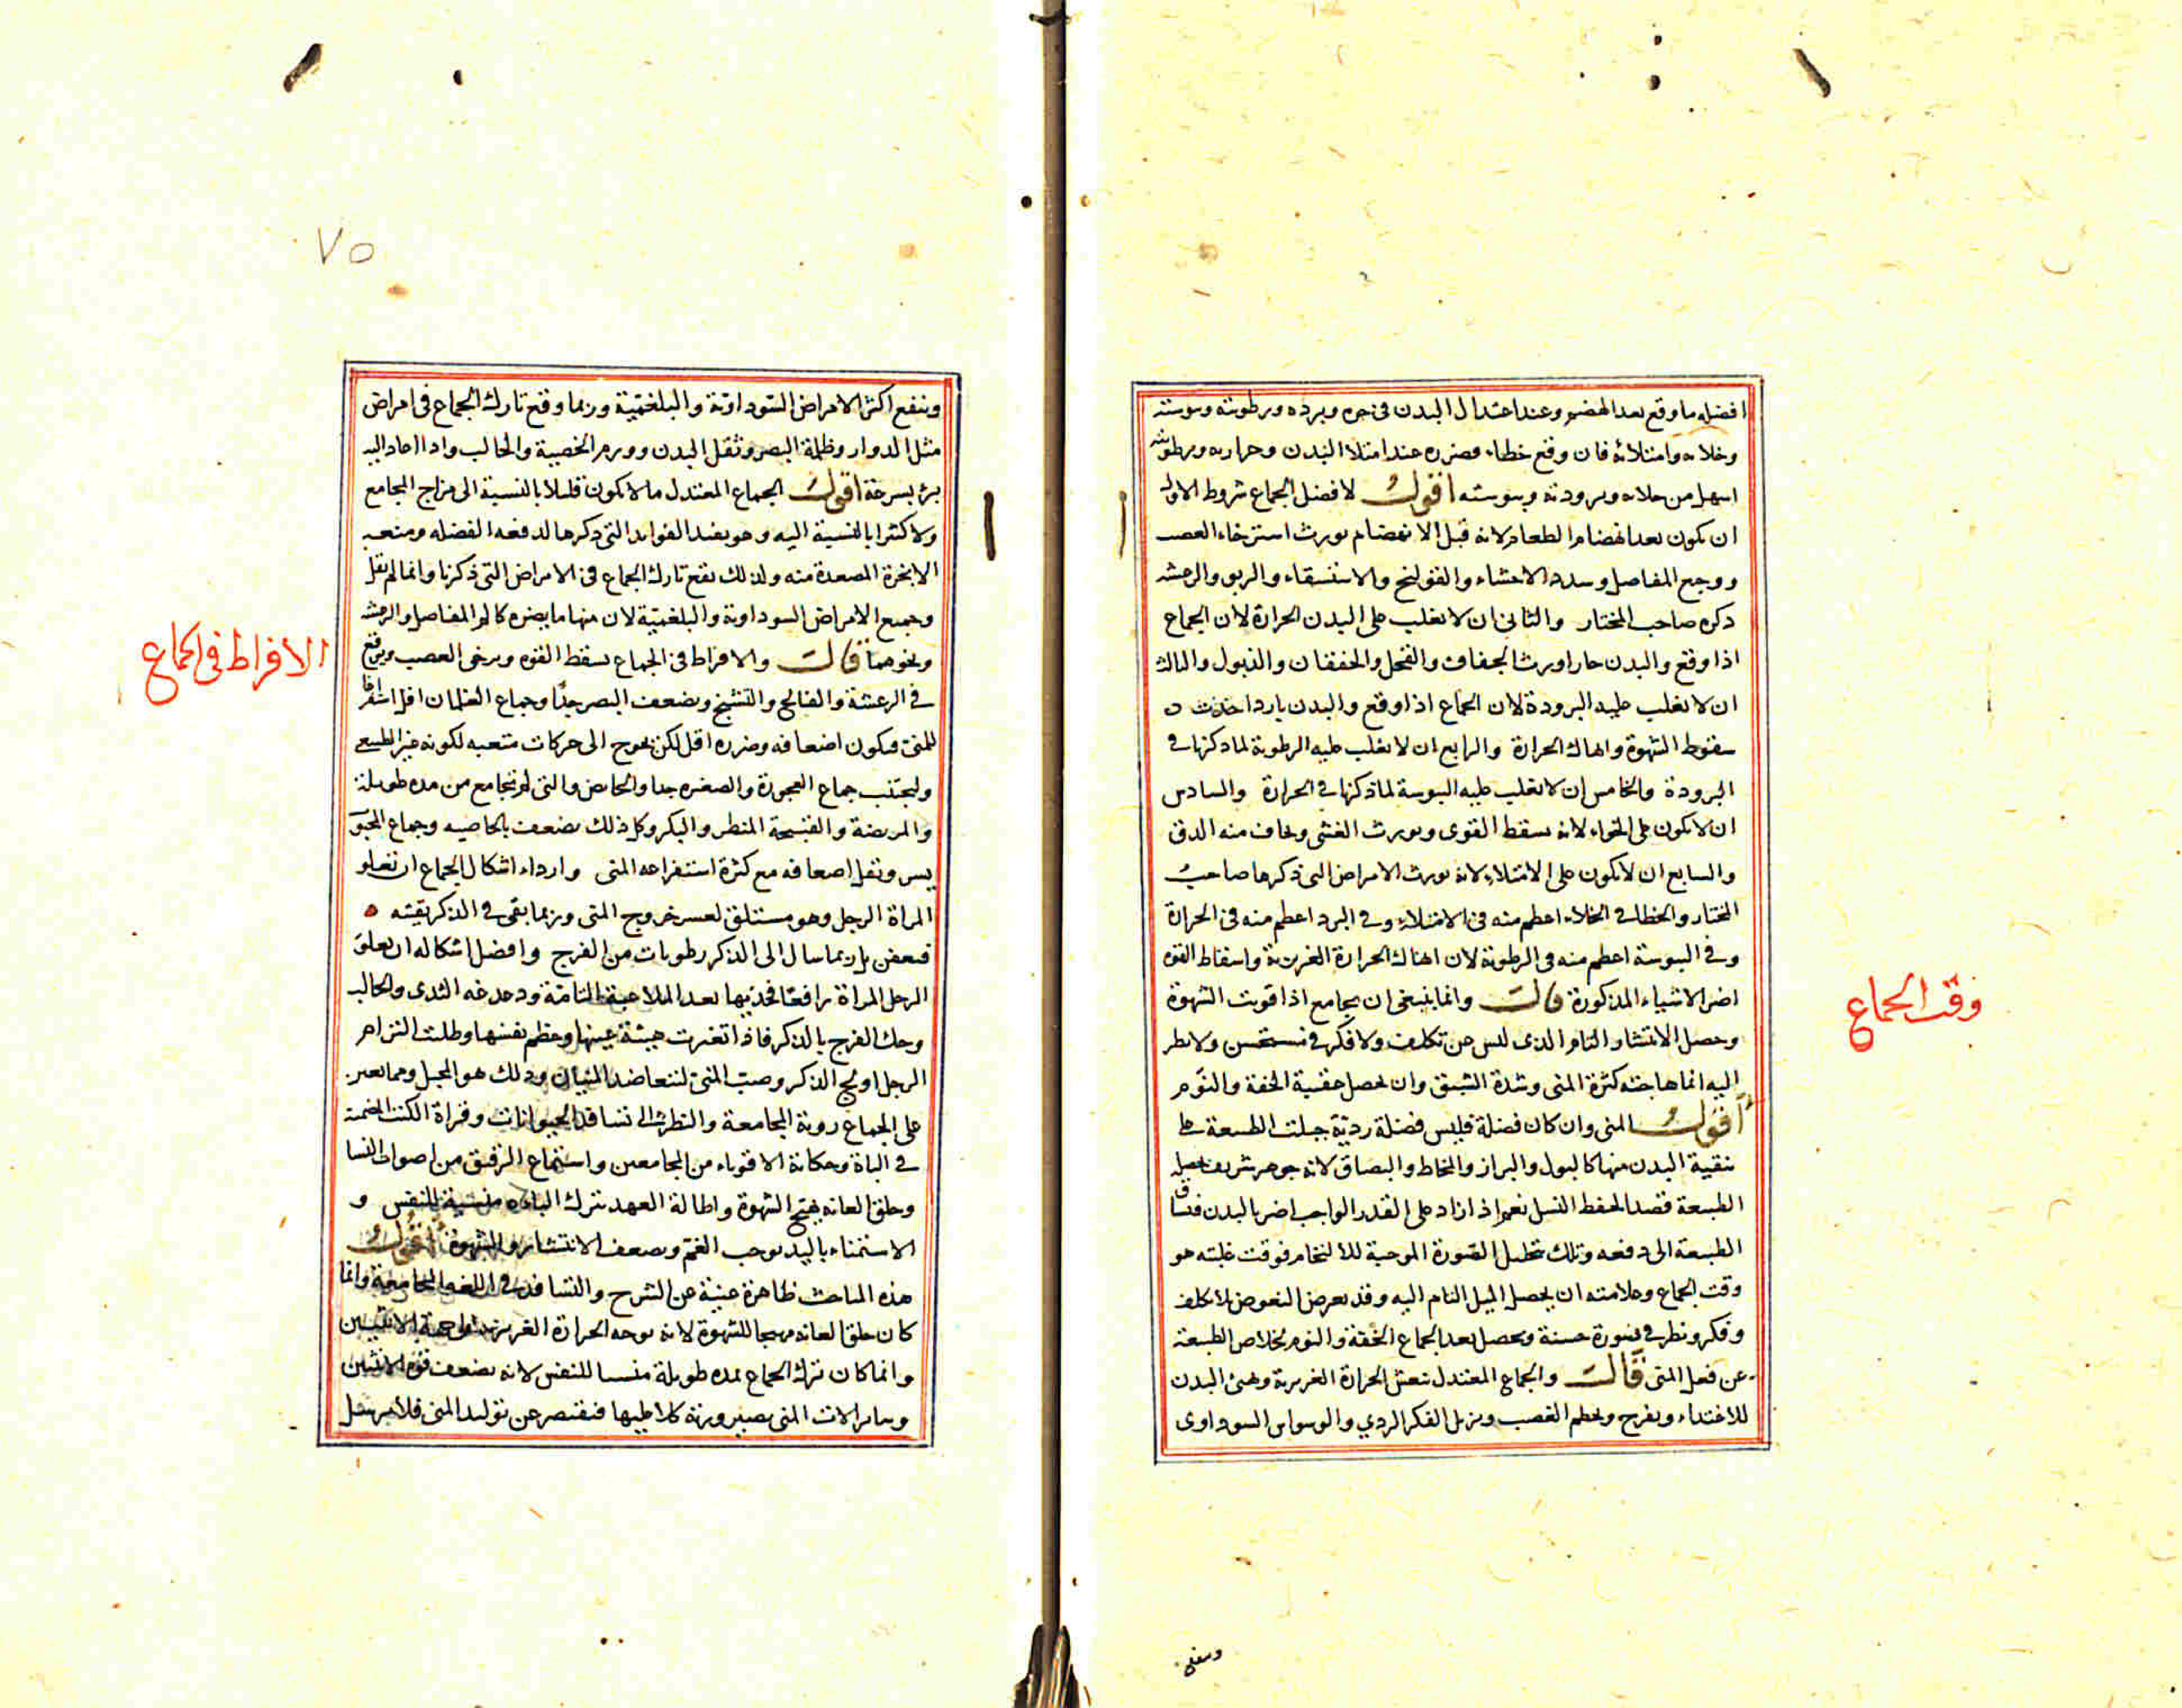 افضله ما وقع بعد الهضم وعند اعتدال البدن فى حره وبرده ورطوبته ويبوسته
وخلائه وامتلائه فان وقع خطاء فضرره عند امتلا البدن وحرارته ورطوبته
اسهل من خلائه وبرودته ويبوسته اقول لافضل الجماع شروط الاول
ان يكون بعد انهضام الطعام لانه قبل الانهضام يورث استرخاء العصب
ووجع المفاصل وسدد الاحشاء والقولنج والاستسقاء والربو والرعشه
ذكره صاحب المختار والثانى ان لا يغلب على البدن الحرارة لان الجماع
اذا وقع والبدن حار اورث الجفاف والقحل والخفقان والذبول والثالث
ان لا يغلب عليه البرودة لان الجماع اذا وقع والبدن بارد احدث
سقوط الشهوة وانهاك الحرارة والرابع ان لا يغلب عليه الرطوبة لما ذكرنا فى
البرودة والخامس ان لا يغلب عليه اليبوسة لما ذكرنا فى الحرارة والسادس
ان لا يكون على الخواء لانه يسقط القوى ويورث الغشى ويخاف منه الدق
والسابع ان لا يكون على الامتلاء لانه يورث الامراض التى ذكرها صاحب
المختار والخطا فى الخلاء اعظم منه فى الامتلاء وفى البرد اعظم منه فى الحرارة
وفى اليبوسة اعظم منه فى الرطوبة لان انهاك الحرارة الغريزية واسقاط القوه
اضر الاشياء المذكورة قال وانما ينبغى ان يجامع اذا قويت الشهوة
وحصل الانتشار التام الذى ليس عن تكلف ولا فكر فى مستحسن ولا نظر
اليه انما هاجته كثرة المنى وشدة الشبق وان يحصل عقيبه الخفة والنوم
اقول المنى وان كان فضلة فليس فضلة ردية جبلت الطبيعة على
تنقية البدن منها كالبول والبراز والمخاط والبصاق لانه جوهر شريف تحصله
الطبيعة قصدا لحفظ النسل نعم اذا زاد على القدر الواجب اضر بالبدن فتساق
الطبيعة الى دفعه وتلك تخليل الصورة الموجبة للالتحام فوقت غلبته هو
وقت الجماع وعلامته ان يحصل الميل التام اليه وقد يعرض النعوض لا بكلف
وفكر ونظر فى صورة حسنة ويحصل بعد الجماع الخفة والنوم لخلاص الطبيعة
عن فعل المنى قال والجماع المعتدل ينعش الحرارة الغريزية ويهيئ البدن
للاغتذاء ويفرح ويحطم الغضب ويزيل الفكر الردي والوسواس السوداوى
وقت الجماع
وينفع
٧٥
وينفع اكثر الامراض السوداوية والبلغمية وربما وقع تارك الجماع فى امراض
مثل الدوار وظلمة البصر وثقل البدن وورم الخصية والحالب واذا عاد اليه
برئ بسرعة اقول الجماع المعتدل ما لا يكون قليلا بالنسبة الى مزاج المجامع
ولا كثيرا بالنسبة اليه وهو يفيد الفوائد التى ذكرها لدفعه الفضله ومنعه
الابخرة المصعدة منه ولذلك يقع تارك الجماع فى الامراض التى ذكرنا وانما لم يقل
وجميع الامراض السوداوية والبلغمية لان منها ما يضره كالم المفاصل والرعشه
ونحوهما قال والافراط فى الجماع يسقط القوه ويرخى العصب ويوقع
فى الرعشة والفالج والتشنج ويضعف البصر جدا وجماع الغلمان اقل استفراغا
للمنى فيكون اضعافه وضرره اقل لكن يحوج الى حركات متعبه لكونه غير الطبيعى
وليجتنب جماع العجوزة والصغيره جدا والحائض والتى لم تجامع من مده طويلة
والمريضة والقبيحة المنظر والبكر وكل ذلك يضعف بالخاصيه وجماع المحبوب
يسر ويقل اضعافه مع كثرة استفراغه المنى واردأ اشكال الجماع ان تعلو
المراة الرجل وهو مستلق لعسر خروج المنى وربما بقى فى الذكر بقيته
فتعفن بل ربما سال الى الذكر رطوبات من الفرج وافضل اشكاله ان يعلو
الرجل المراة رافعا فخذيها بعد الملاعبة التامة ودغدغه الثدى والحالب
وحك الفرج بالذكر فاذا تغيرت هيئة عينها وعظم نفسها وطلبت التزام
الرجل اولج الذكر وصب المنى لتتعاضد المنيان وذلك هو المحبل ومما يعين
على الجماع روية المجامعة والنظر الى تسافد الحيوانات وقراة الكتب المصنفة
فى الباة وحكاية الاقوياء من المجامعين واستماع الرقيق من اصوات النسا
وحلق العانه يهيج الشهوة واطالة العهد بترك الباءه منسية للنفس و
الاستمناء باليد يوجب الغم ويضعف الانتشار والشهوة اقول
هذه المباحث ظاهرة غنية عن الشرح والتسافد فى اللغه المجامعة وانما
كان حلق العانه مهيجا للشهوة لانه يوجه الحرارة الغريزية الى جهة الانثيين
وانما كان ترك الجماع مده طويلة منسيا للنفس لانه يضعف قوة الانثيين
وسائر الات المنى بصيرورته كلا عليها فتقتصر عن توليد المنى فلا يرسل
الافراط فى الجماع